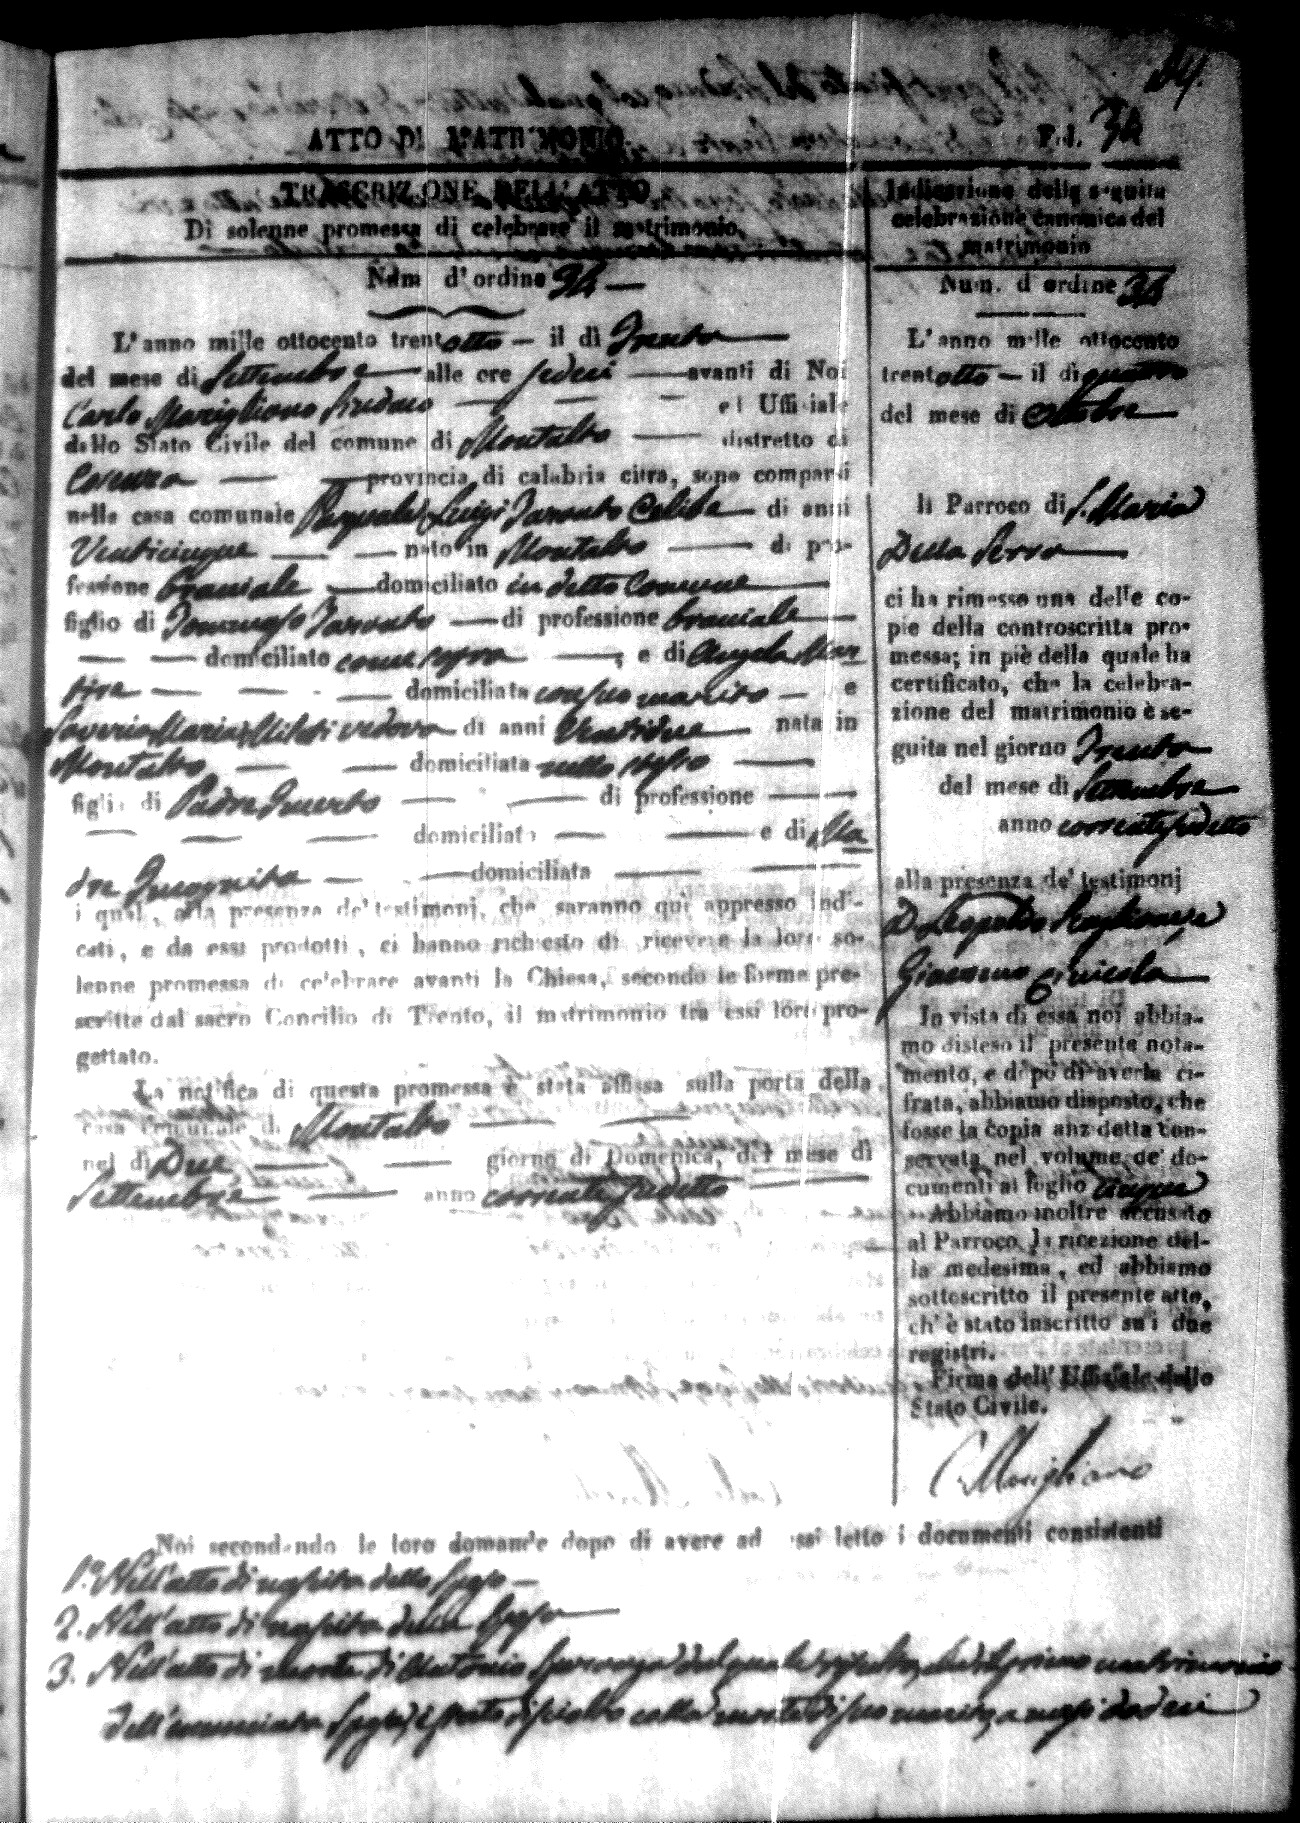 34.
ATTO DI MATRIMONIO
Fol. 34
TRASCRIZIONE DELL'ATTO
Di solenne promessa di celebrare il matrimonio.
Num d'ordine 34
L'anno mille ottocento trentotto — il dì Trenta
del mese di Settembre alle ore sedeci avanti di Noi
Carlo Marigliano Sindaco ed Ufficiale
dello Stato Civile del comune di Montalto distretto di
Cosenza provincia di calabria citra, sono comparsi
nella casa comunale Pasquale Luigi Taranto Celibe di anni
Venticinque nato in Montalto di pro-
fessione braciale domiciliato in detto Comune
figlio di Tommaso Taranto di professione braciale
domiciliato come sopra, e di Angela Mar
tire domiciliata con suo marito e
Saveria Maria Miloti vedova di anni Ventidue nata in
Montalto domiciliata nello stesso
figlia di Padre Incerto di professione
domiciliato e di Ma
dre Incognita domiciliata
i quali, alla presenza de' testimonj, che saranno qui appresso indi-
cati, e da essi prodotti, ci hanno richiesto di ricevere la loro so-
lenne promessa di celebrare avanti la Chiesa, secondo le forme pre-
scritte dal sacro Concilio di Trento, il matrimonio tra essi loro pro-
gettato.
La notifica di questa promessa è stata affissa sulla porta della
casa comunale di Montalto
nel dì Due giorno di Domenica, del mese di
Settembre anno corrente sudetto
Indicazione della seguita
celebrazione canonica del
matrimonio
Num. d'ordine 34
L'anno mille ottocento
trentotto — il dì quattro
del mese di Ottobre
Il Parroco di S. Maria
Della Serra
ci ha rimesso una delle co-
pie della controscritta pro-
messa; in piè della quale ha
certificato, che la celebra-
zione del matrimonio è se-
guita nel giorno Trenta
del mese di Settembre
anno corrente sudetto
alla presenza de' testimonj
D. Leopoldo
Giacomo
In vista di essa noi abbia-
mo disteso il presente nota-
mento, e di po di averla ci-
frata, abbiamo disposto, che
fosse la copia anzidetta con-
servata nel volume de' do-
cumenti al foglio
Abbiamo inoltre accusato
al Parroco la ricezione del-
la medesima, ed abbiamo
sottoscritto il presente atto,
ch'è stato inscritto su i due
registri.
Firma dell'Uffiziale dello
Stato Civile.
C. Marigliano
Noi secondando le loro domande dopo di avere ad essi letto i documenti consistenti
1.° Nell'atto di nascita dello Sposo —
2. Nell'atto di nascita della Sposa
3. Nell'atto di morte di Antonio dal quale risulta, che il primo matrimonio
dell'enunciata Sposa, è stato disciolto colla morte di suo marito, a mesi dodeci